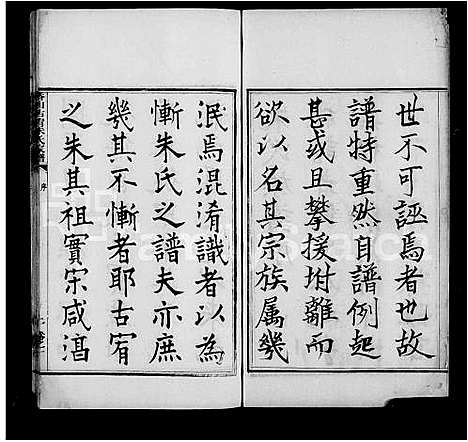 世不可誣焉者也故
譜特重然自譜例起
甚或且攀援坿離而
欲以名其宗族属幾
泯焉混淆識者以為
慚朱氏之譜夫亦庶
幾其不慚者耶古宥
之朱其祖實宋咸淳
序